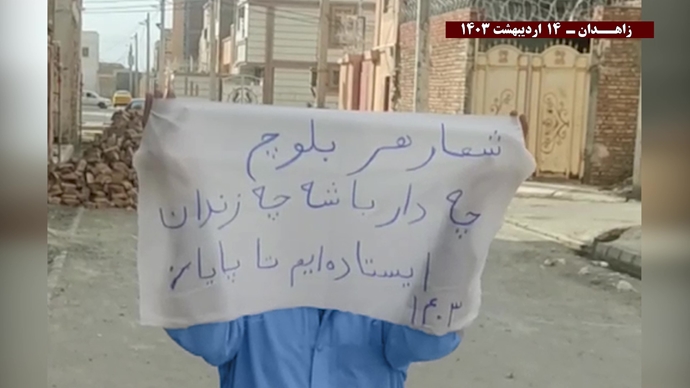 زاهدان ــ ۱۴ اردیبهشت ۱۴۰۳
شعار هر بلوچ
چه دار باشه چه زندان
ایستاده‌ایم تا پایان
۱۴۰۳